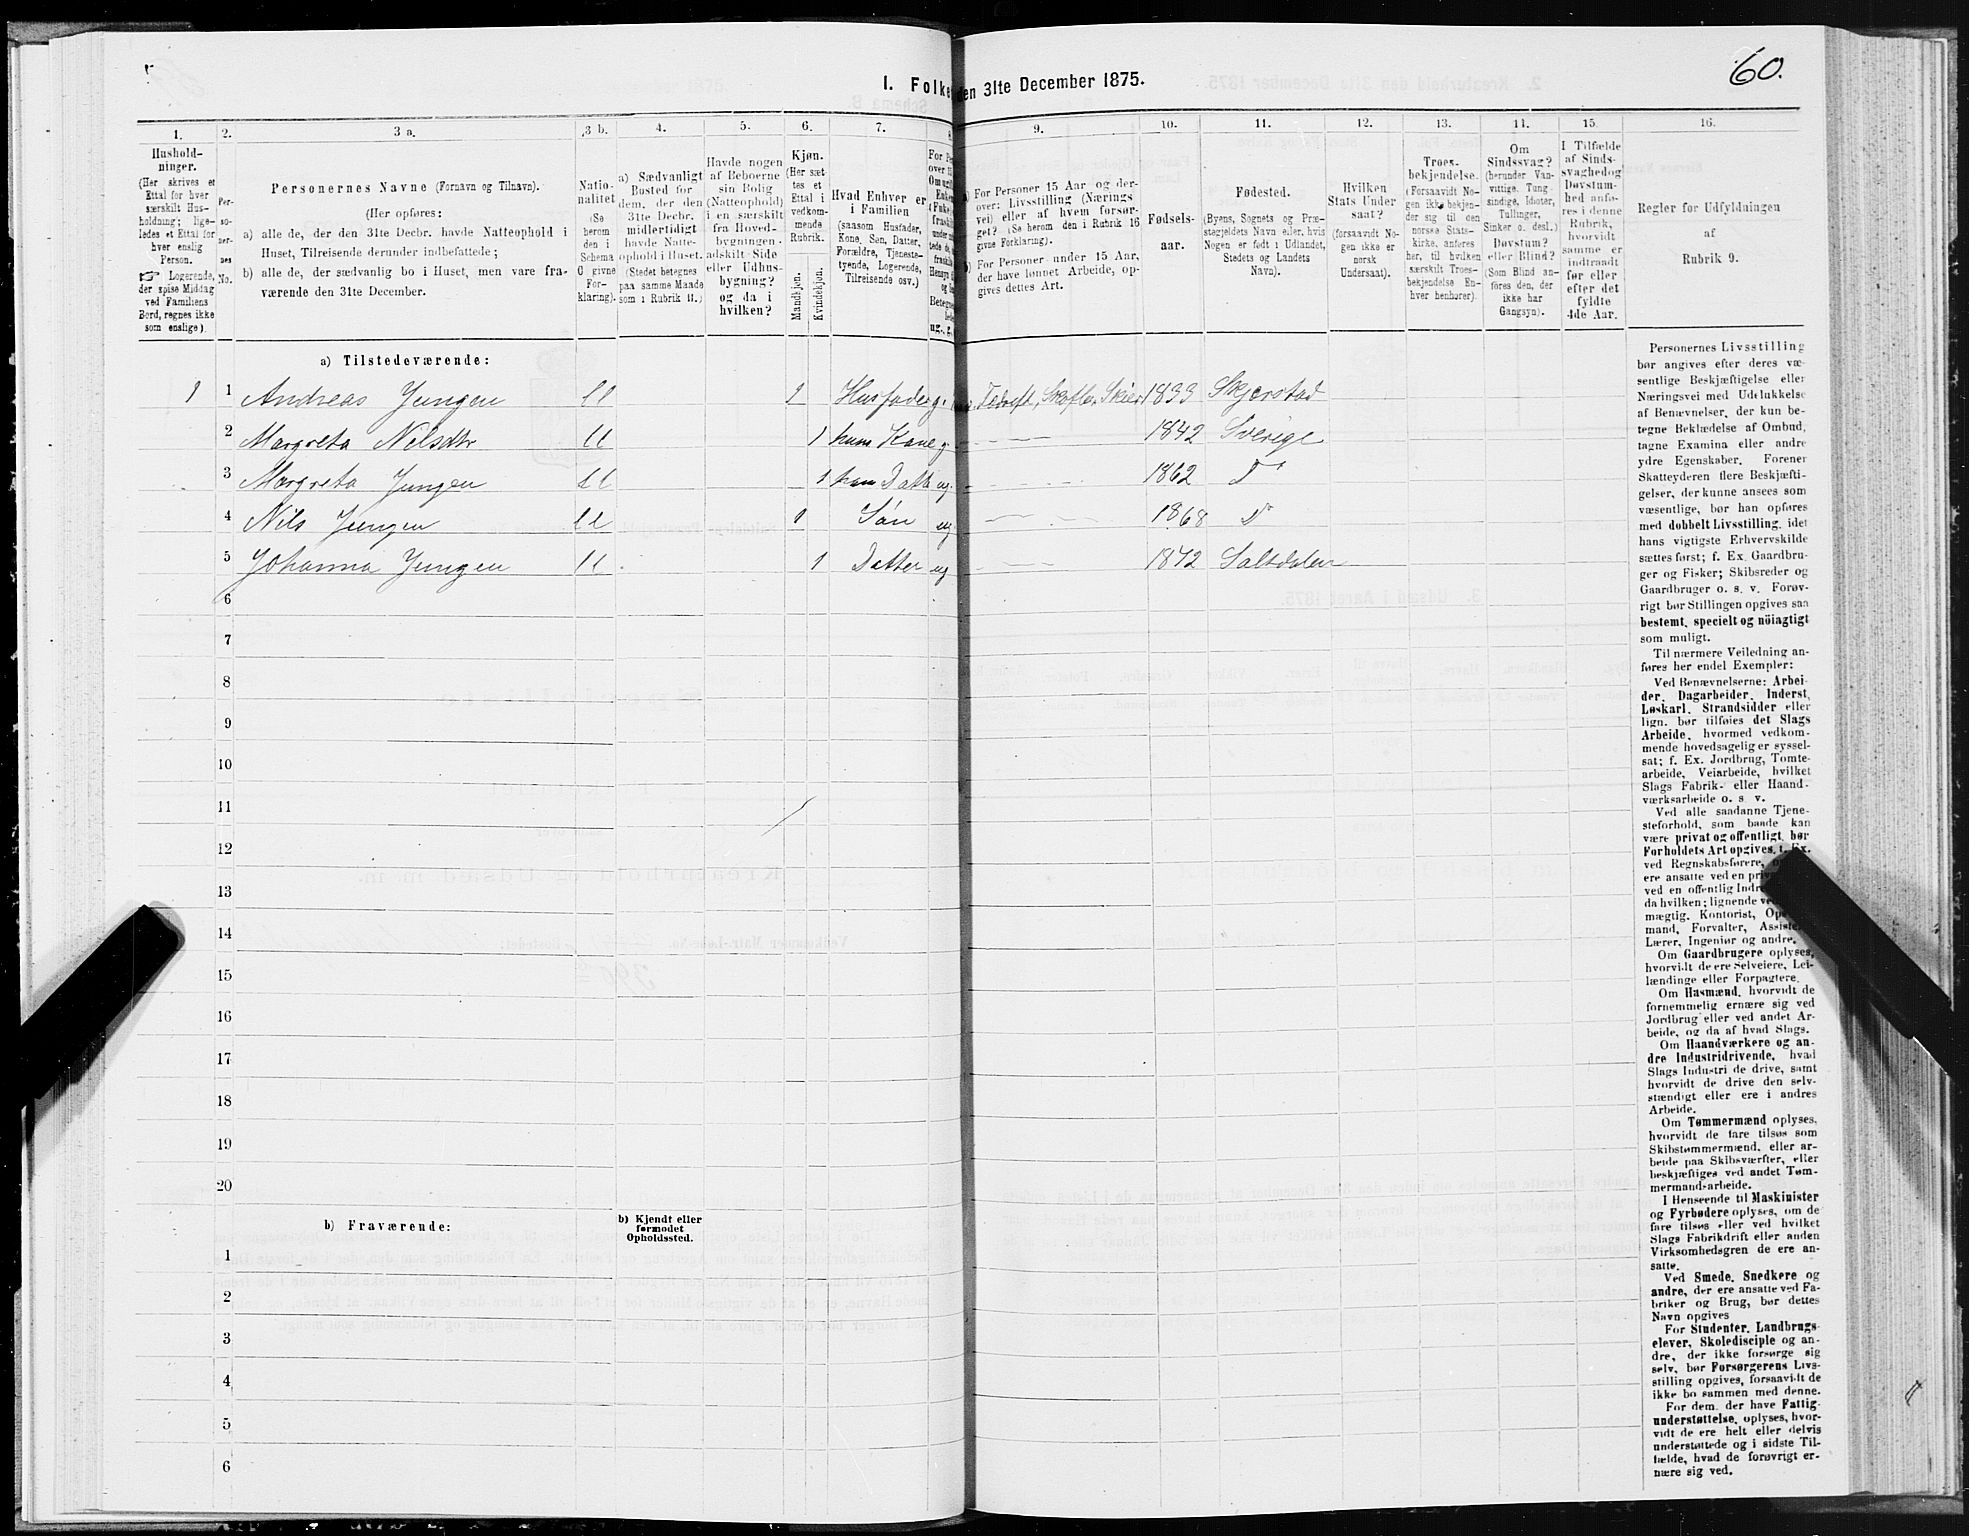 60.
I. Folke den 31te December 1875.
1. 2. 3 a. 3 b. 4. 5. 6. 7. 8. 9. 10. 11. 12. 13. 14. 15. 16.
Hushold-
ninger.
(Her skrives et
Ettal for hver
særskilt Hus-
holdning; lige-
ledes et Ettal for
hver enslig
Person.
☞ Logerende,
der spise Middag
ved Familiens
Bord, regnes ikke
som enslige).
Per-
so-
ner-
nes
No.
Personernes Navne (Fornavn og Tilnavn).
(Her opføres:
a) alle de, der den 31te Decbr. havde Natteophold i
Huset, Tilreisende derunder indbefattede;
b) alle de, der sædvanlig bo i Huset, men vare fra-
værende den 31te December.
Natio-
nalitet
(Se
herom
den i
Schema
O givne
For-
klaring).
a) Sædvanligt
Bosted for
dem, der den
31te Decbr.
midlertidigt
havde Natte-
ophold i Huset.
(Stedet betegnes
paa samme Maade
som i Rubrik 11.)
Havde nogen
af Beboerne
sin Bolig
(Natteophold)
i en særskilt
fra Hoved-
bygningen
adskilt Side
eller Udhus-
bygning?
og da i
hvilken?
Kjøn.
(Her sæt-
tes et
Ettal i
vedkom-
mende
Rubrik.
Mandkjøn.
Kvindekjøn.
Hvad Enhver er
i Familien
(saasom Husfader,
Kone, Søn, Datter,
Forældre, Tjeneste-
tyende, Logerende,
Tilreisende osv.)
a) For Personer 15 Aar og der-
over: Livsstilling (Nærings
vei) eller af hvem forsør-
get? (Se herom den i Rubrik 16
givne Forklaring).
b) For Personer under 15 Aar,
der have lønnet Arbeide, op-
gives dettes Art.
Fødsels-
aar.
Fødested.
(Byens, Sognets og Præ-
stegjeldets Navn eller, hvis
Nogen er født i Udlandet,
Stedets og Landets
Navn).
Hvilken
Stats Under
saat?
(forsaavidt No-
gen ikke er
norsk
Undersaat).
Troes-
bekjendelse.
(Forsaavidt No-
gen ikke bekjen-
der sig til den
norske Stats-
kirke, anføres
her, til hvilken
særskilt Troes-
bekjendelse En-
hver henhører).
Om
Sindssvag?
(herunder Van-
vittige, Tung-
sindige, Idioter,
Tullinger,
Sinker o. desl.)
Døvstum?
eller Blind?
(Som Blind an-
føres den, der
ikke har
Gangsyn).
I Tilfælde
af Sinds-
svaghed og
Døvstum-
hed anfø-
res i denne
Rubrik,
hvorvidt
samme er
indtraadt
før eller
efter det
fyldte
4de Aar.
Regler for Udfyldningen
af
Rubrik 9.
a) Tilstedeværende:
1 1 Andreas Jungen 1 Husfader g. 1833 Skjerstad
2 Margreta Nilsdtr 1 hans Kone g 1842 Sverige
3 Margreta Jungen 1 hans Datt ug 1862 D
4 Nils Jungen 1 Søn ug 1868 D
5 Johanna Jungen 1 Datter ug 1872 Saltdalen
6
7
8
9
10
11
12
13
14
15
16
17
18
19
20
b) Fraværende:
b) Kjendt eller
formodet
Opholdssted.
1
2
3
4
5
6
Personernes Livsstilling
bør angives efter deres væ-
sentlige Beskjæftigelse eller
Næringsvei med Udelukkelse
af Benævnelser, der kun be-
tegne Beklædelse af Ombud,
tagne Examina eller andre
ydre Egenskaber. Forener
Skatteyderen flere Beskjæfti-
gelser, der kunne ansees som
væsentlige, bør han opføres
med dobbelt Livsstilling, idet
hans vigtigste Erhvervskilde
sættes først; f. Ex. Gaardbru-
ger og Fisker; Skibsreder og
Gaardbruger o. s. v. Forøv-
rigt bør Stillingen opgives saa
bestemt, specielt og nöiagtigt
som muligt.
Til nærmere Veiledning an-
føres her endel Exempler:
Ved Benævnelserne: Arbei-
der, Dagarbeider, Inderst,
Løskarl, Strandsidder eller
lign. bør tilføies det Slags
Arbeide, hvormed vedkom-
mende hovedsagelig er syssel-
sat; f. Ex. Jordbrug, Tomte-
arbeide, Veiarbeide, hvilket
Slags Fabrik- eller Haand-
værksarbeide o. s. v.
Ved alle saadanne Tjene-
steforhold, som baade kan
være privat og offentligt, bør
Forholdets Art opgives, t. Ex.
ved Regnskabsførere,
ere ansatte ved en
ved en offentlig
da hvilken; lignende
mægtig, Kontorist,
mand, Forvalter,
Lærer, Ingeniør og andre.
Om Gaardbrugere oplyses,
hvorvidt de ere Selveiere, Lei-
lændinge eller Forpagtere.
Om Husmænd, hvorvidt de
fornemmelig ernære sig ved
Jordbrug eller ved andet Ar-
beide, og da af hvad Slags.
Om Haandværkere og an-
dre Industridrivende, hvad
Slags Industri de drive, samt
hvorvidt de drive den selv-
stændigt eller ere i andres
Arbeide.
Om Tømmermænd oplyses,
hvorvidt de fare tilsøs som
Skibstømmermænd, eller ar-
beide paa Skibsværfter, eller
beskjæftiges ved andet Tøm-
mermandsarbeide.
I Henseende til Maskinister
og Fyrbødere oplyses, om de
fare tilsøs eller ved hvilket
Slags Fabrikdrift eller anden
Virksomhedsgren de ere an-
satte.
Ved Smede, Snedkere og
andre, der ere ansatte ved Fa-
briker og Brug, bør dettes
Navn opgives
For Studenter, Landbrugs-
elever, Skoledisciple og an-
dre, der ikke forsørge sig
selv, bør Forsørgerens Livs-
stilling opgives, forsaavidt de
ikke bo sammen med denne.
For dem, der have Fattig-
understøttelse, oplyses, hvor-
vidt de ere helt eller delvis
understøttede og i sidste Til-
fælde, hvad de forøvrigt er-
nære sig ved.